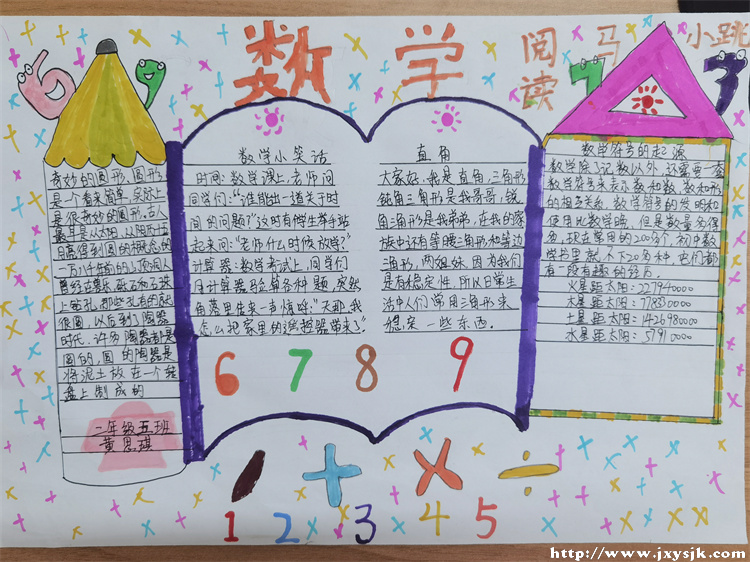 数学
阅读
马小跳
69
77
奇妙的圆形,圆形
是个看来简单,实际上
是很奇妙的圆形,古人
最早是从太阳,从阴历十五
月亮得到圆的概念的
一万八千年前的山顶洞人
上钻孔,那些孔有的就
很圆,以后到了陶器
时代,许多陶器都是
圆的,圆的陶器是
将泥土放在一个转
盘上制成的
二年级五班
黄思琪
数学小笑话
时间:数学课上,老师问
同学们:"谁能出一道关于时
间的问题?"这时有学生举手站
起来问:"老师什么时候放学?"
计算器:数学考试上,同学们
用计算器验算各种题,突然
角落里传来一声惊呼:"天哪,我
怎么把家里的遥控器带来了"
6 7 8 9
直角
大家好,我是直角,三角形
钝角三角形是我哥哥,锐
角三角形是我弟弟,在我的家
族中还有等腰三角形和等边
三角形,两姐妹,因为我们
是有稳定性,所以日常生
活中人们常用三角形来
稳定一些东西.
数学符号的起源
数学除了记数以外,还需要一套
数学符号来表示数和数,数和形
的相互关系,数学符号的发明和
使用比数字晚,但是数量多得
多,现在常用的200多个,初中数
学书里就不下20多种,它们都
有一段有趣的经历.
火星距太阳:227940000
木星距太阳:77830000
土星距太阳:1426980000
水星距太阳:57910000
+ × ÷
1 2 3 4 5
http://www.jxysjk.com